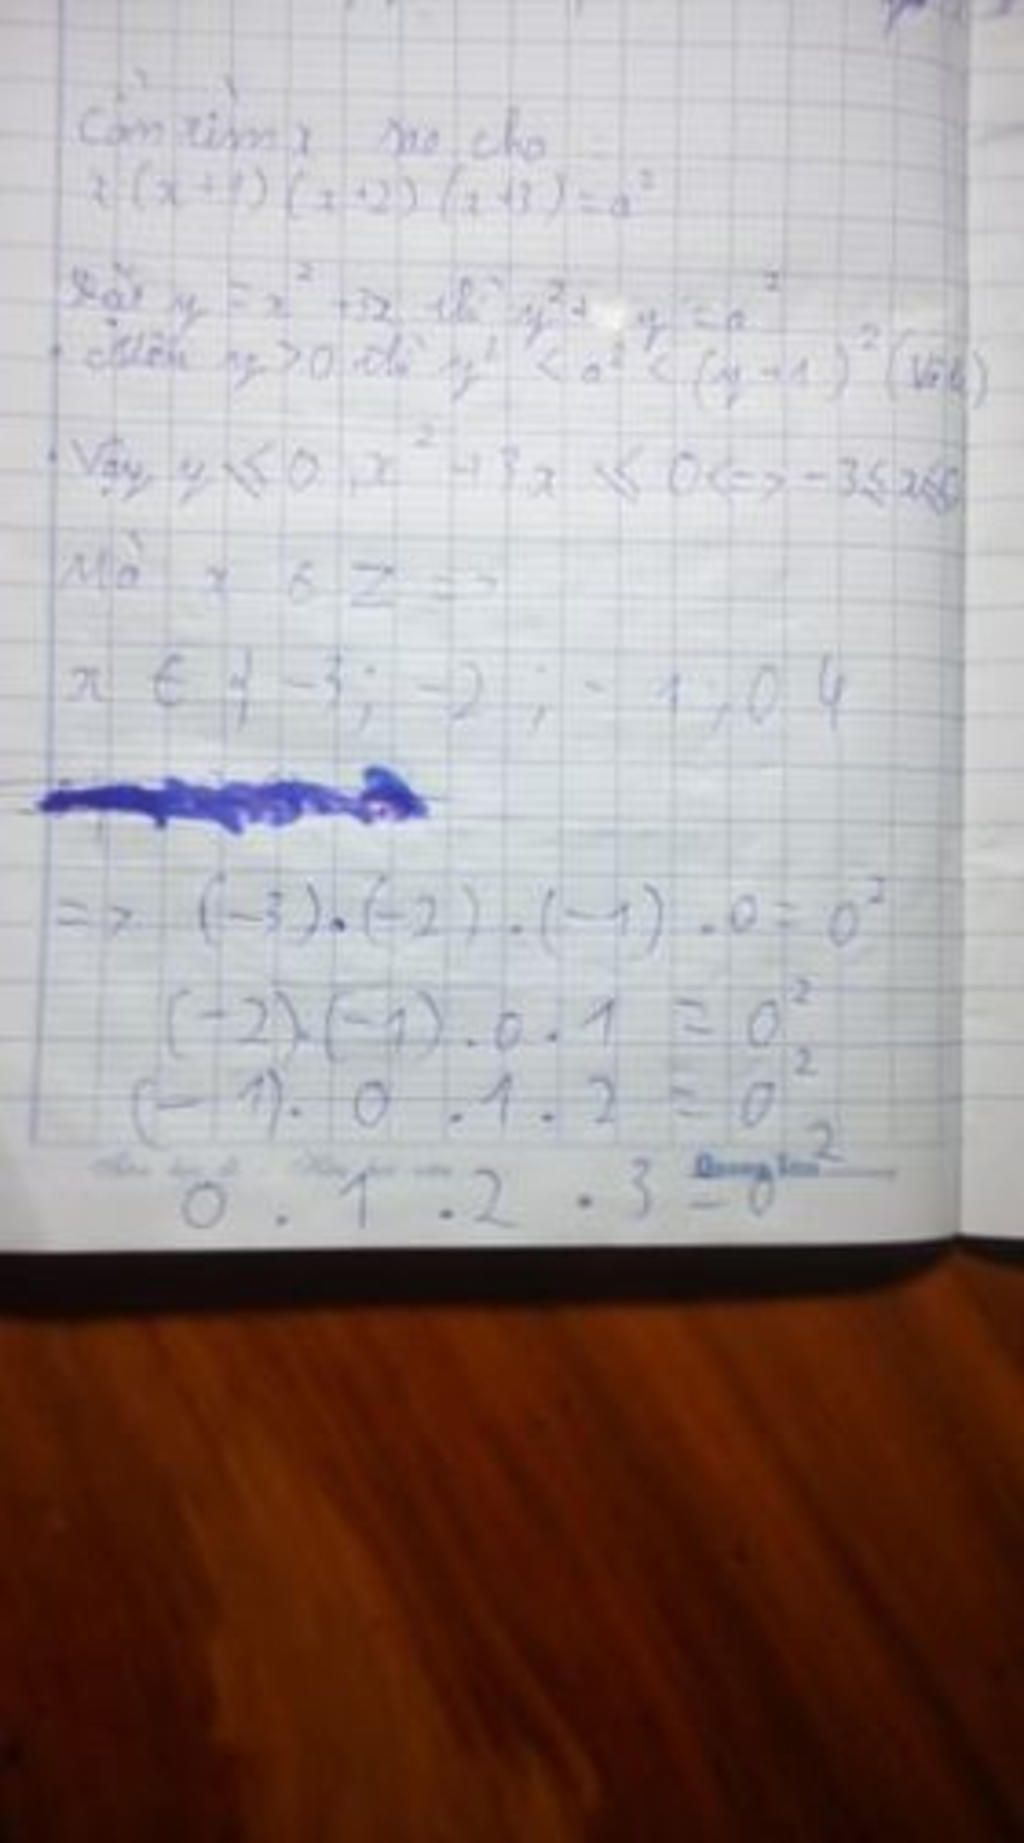 Cần tìm x sao cho
x(x+1)(x+2)(x+3)=a²
Đặt y = x² +3x thì y²+ y = a²
Nếu y>0 thì y² < a² < (y+1)² (Vô lí)
Vậy y ≤ 0, x² +3x ≤ 0 <=> -3≤x≤0
Mà x ∈ Z =>
x ∈ { -3; -2 ; - 1 ; 0 }
=> (-3).(-2).(-1).0 = 0²
(-2).(-1).0.1 = 0²
(-1). 0 .1. 2 = 0²
0 . 1 . 2 . 3 = 0²